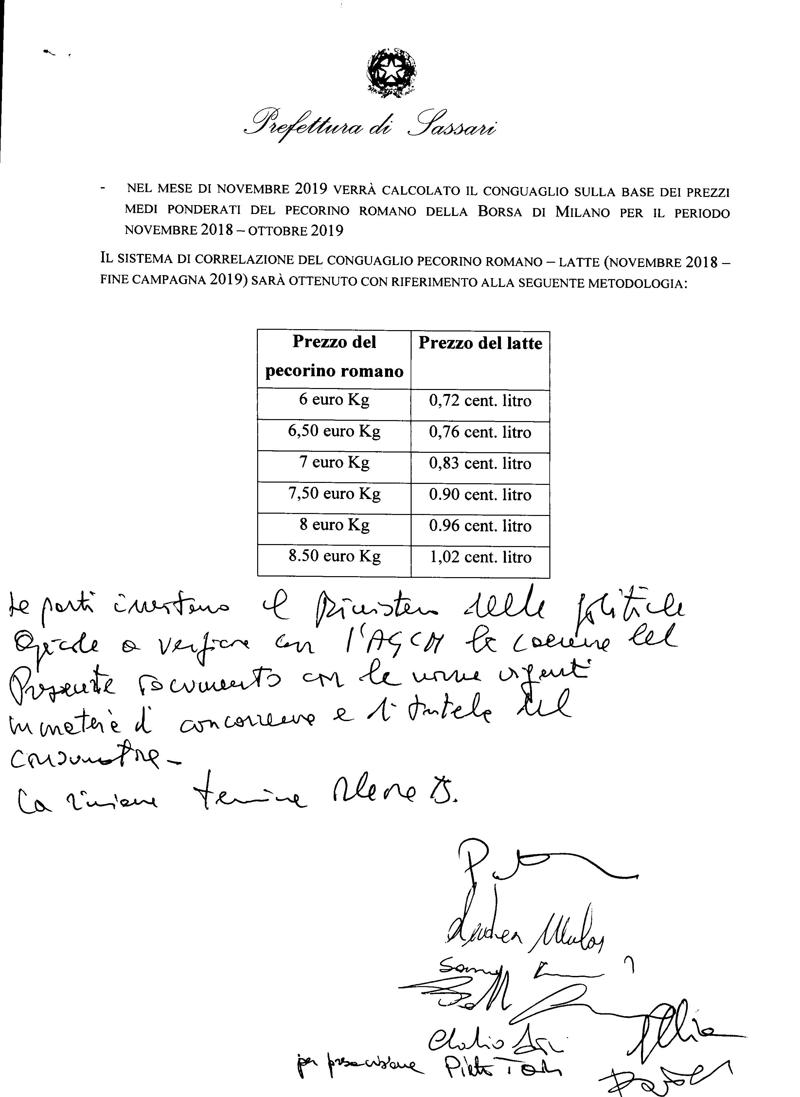 Prefettura di Sassari
- NEL MESE DI NOVEMBRE 2019 VERRÀ CALCOLATO IL CONGUAGLIO SULLA BASE DEI PREZZI
MEDI PONDERATI DEL PECORINO ROMANO DELLA BORSA DI MILANO PER IL PERIODO
NOVEMBRE 2018 – OTTOBRE 2019
IL SISTEMA DI CORRELAZIONE DEL CONGUAGLIO PECORINO ROMANO – LATTE (NOVEMBRE 2018 –
FINE CAMPAGNA 2019) SARÀ OTTENUTO CON RIFERIMENTO ALLA SEGUENTE METODOLOGIA:
Prezzo del pecorino romano Prezzo del latte
6 euro Kg 0,72 cent. litro
6,50 euro Kg 0,76 cent. litro
7 euro Kg 0,83 cent. litro
7,50 euro Kg 0.90 cent. litro
8 euro Kg 0.96 cent. litro
8.50 euro Kg 1,02 cent. litro
Le parti invitano il Ministero delle politiche
Agricole a verificare con l'AGCM la coerenza del
Presente documento con le norme vigenti
in materia di concorrenza e di tutela del
consumatore -
La riunione termina alle ore
per presa visione Pietro